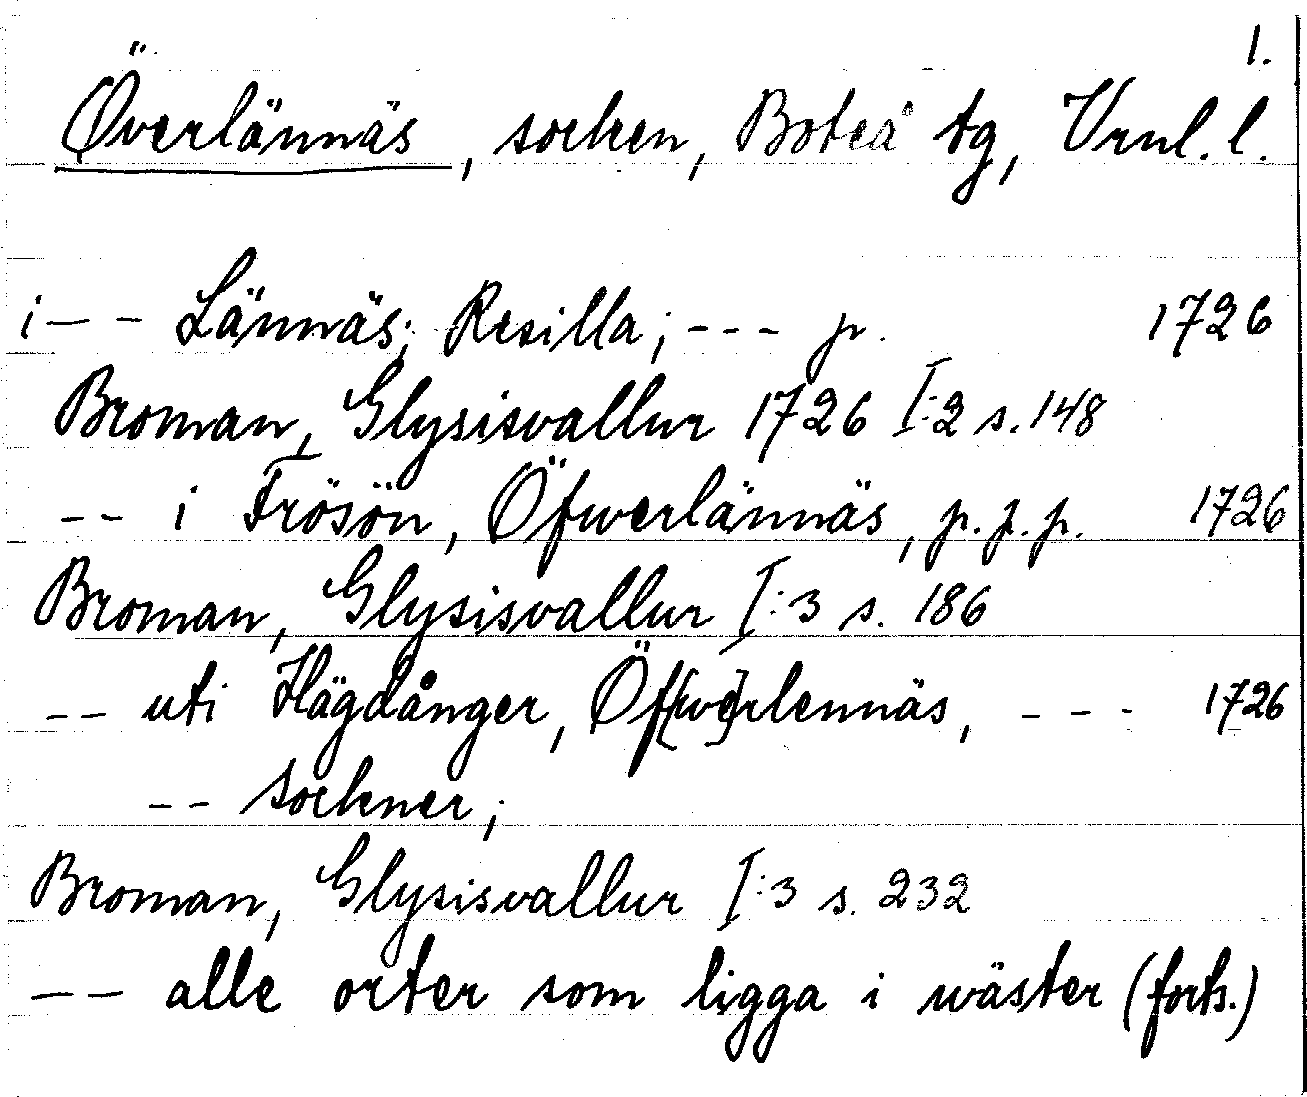 1.
Överlännäs, socken, Boteå tg, Vrnl. l.
i -- Lännäs; Resilla; --- p. 1726
Broman, Glysisvallur 1726 I:2 s. 148
-- i Frösön, Öfwerlännäs, p. p. p. 1726
Broman, Glysisvallur I:3 s. 186
-- uti Hägdånger, Öf[we]rlennäs, --- 1726
-- sockner;
Broman, Glysisvallur I:3 s. 232
-- alle orter som ligga i wäster (forts.)